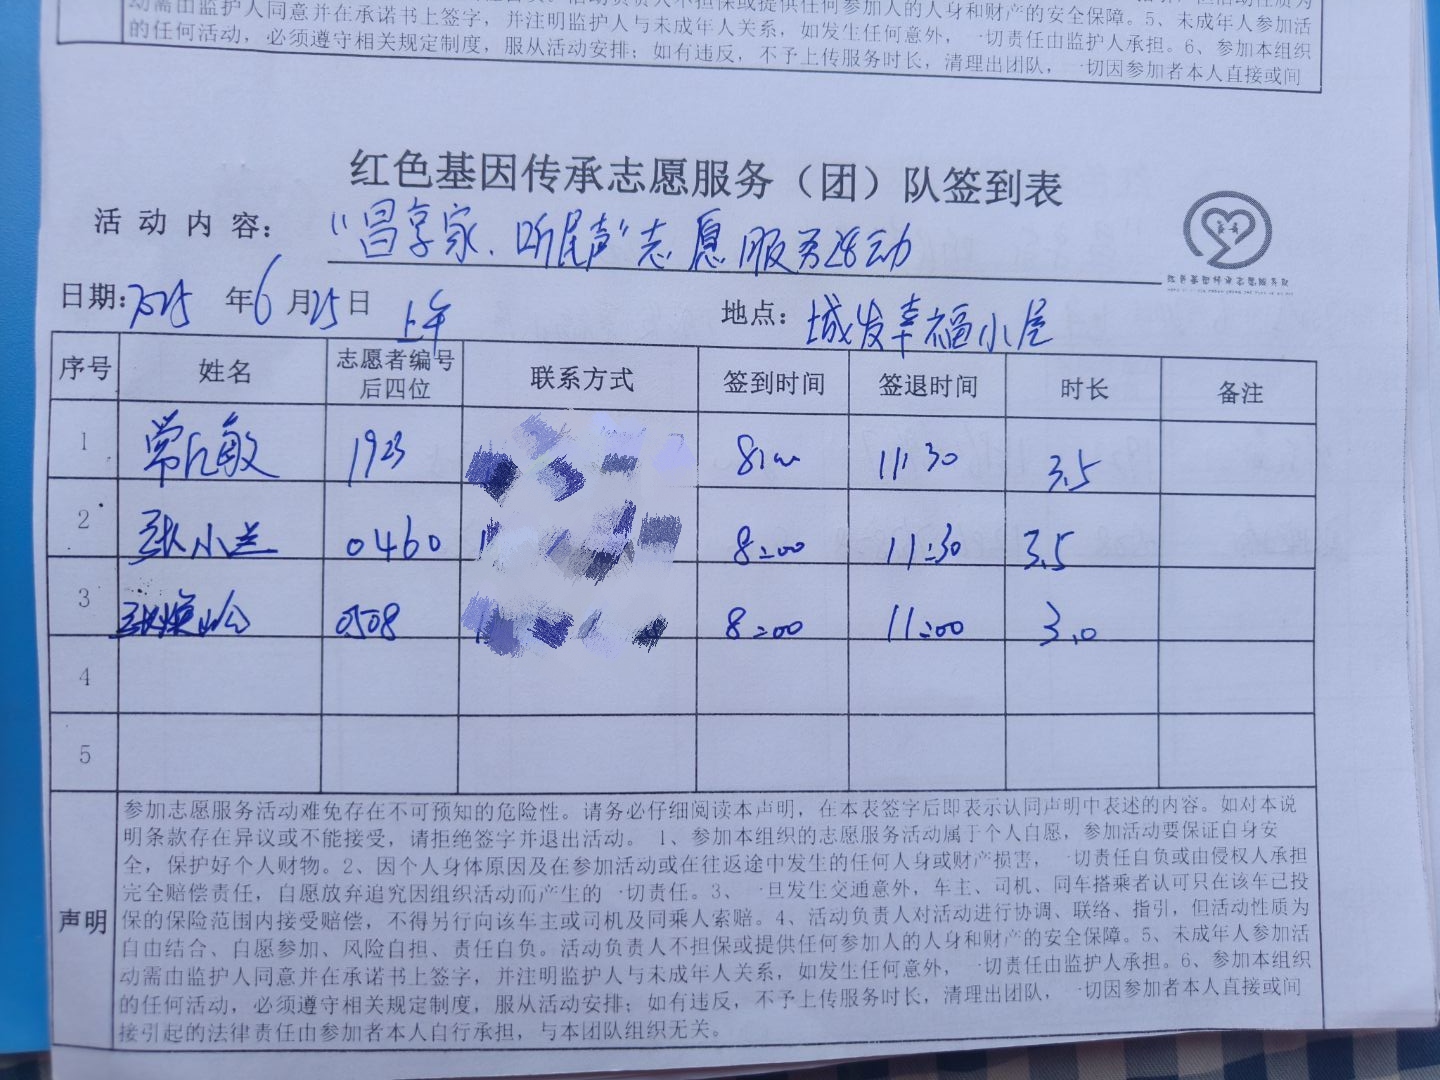 动需由监护人同意并在承诺书上签字，并注明监护人与未成年人关系，如发生任何意外，一切责任由监护人承担。6、参加本组织
的任何活动，必须遵守相关规定制度，服从活动安排；如有违反，不予上传服务时长，清理出团队，一切因参加者本人直接或间
红色基因传承志愿服务（团）队签到表
活动内容：“昌享家、听民声”志愿服务活动
红色基因传承志愿服务队
日期：2025年6月25日 上午 地点：城发幸福小屋
序号 姓名 志愿者编号后四位 联系方式 签到时间 签退时间 时长 备注
1 常 敏 1923 8:00 11:30 3.5
2 张小兰 0460 1 8:00 11:30 3.5
3 张焕 0508 1 8:00 11:00 3.0
4
5
声明
参加志愿服务活动难免存在不可预知的危险性。请务必仔细阅读本声明，在本表签字后即表示认同声明中表述的内容。如对本说
明条款存在异议或不能接受，请拒绝签字并退出活动。 1、参加本组织的志愿服务活动属于个人自愿，参加活动要保证自身安
全，保护好个人财物。2、因个人身体原因及在参加活动或在往返途中发生的任何人身或财产损害，一切责任自负或由侵权人承担
完全赔偿责任，自愿放弃追究因组织活动而产生的一切责任。3、一旦发生交通意外，车主、司机、同车搭乘者认可只在该车已投
保的保险范围内接受赔偿，不得另行向该车主或司机及同乘人索赔。4、活动负责人对活动进行协调、联络、指引，但活动性质为
自由结合、自愿参加、风险自担、责任自负。活动负责人不担保或提供任何参加人的人身和财产的安全保障。5、未成年人参加活
动需由监护人同意并在承诺书上签字，并注明监护人与未成年人关系，如发生任何意外，一切责任由监护人承担。6、参加本组织
的任何活动，必须遵守相关规定制度，服从活动安排；如有违反，不予上传服务时长，清理出团队，一切因参加者本人直接或间
接引起的法律责任由参加者本人自行承担，与本团队组织无关。